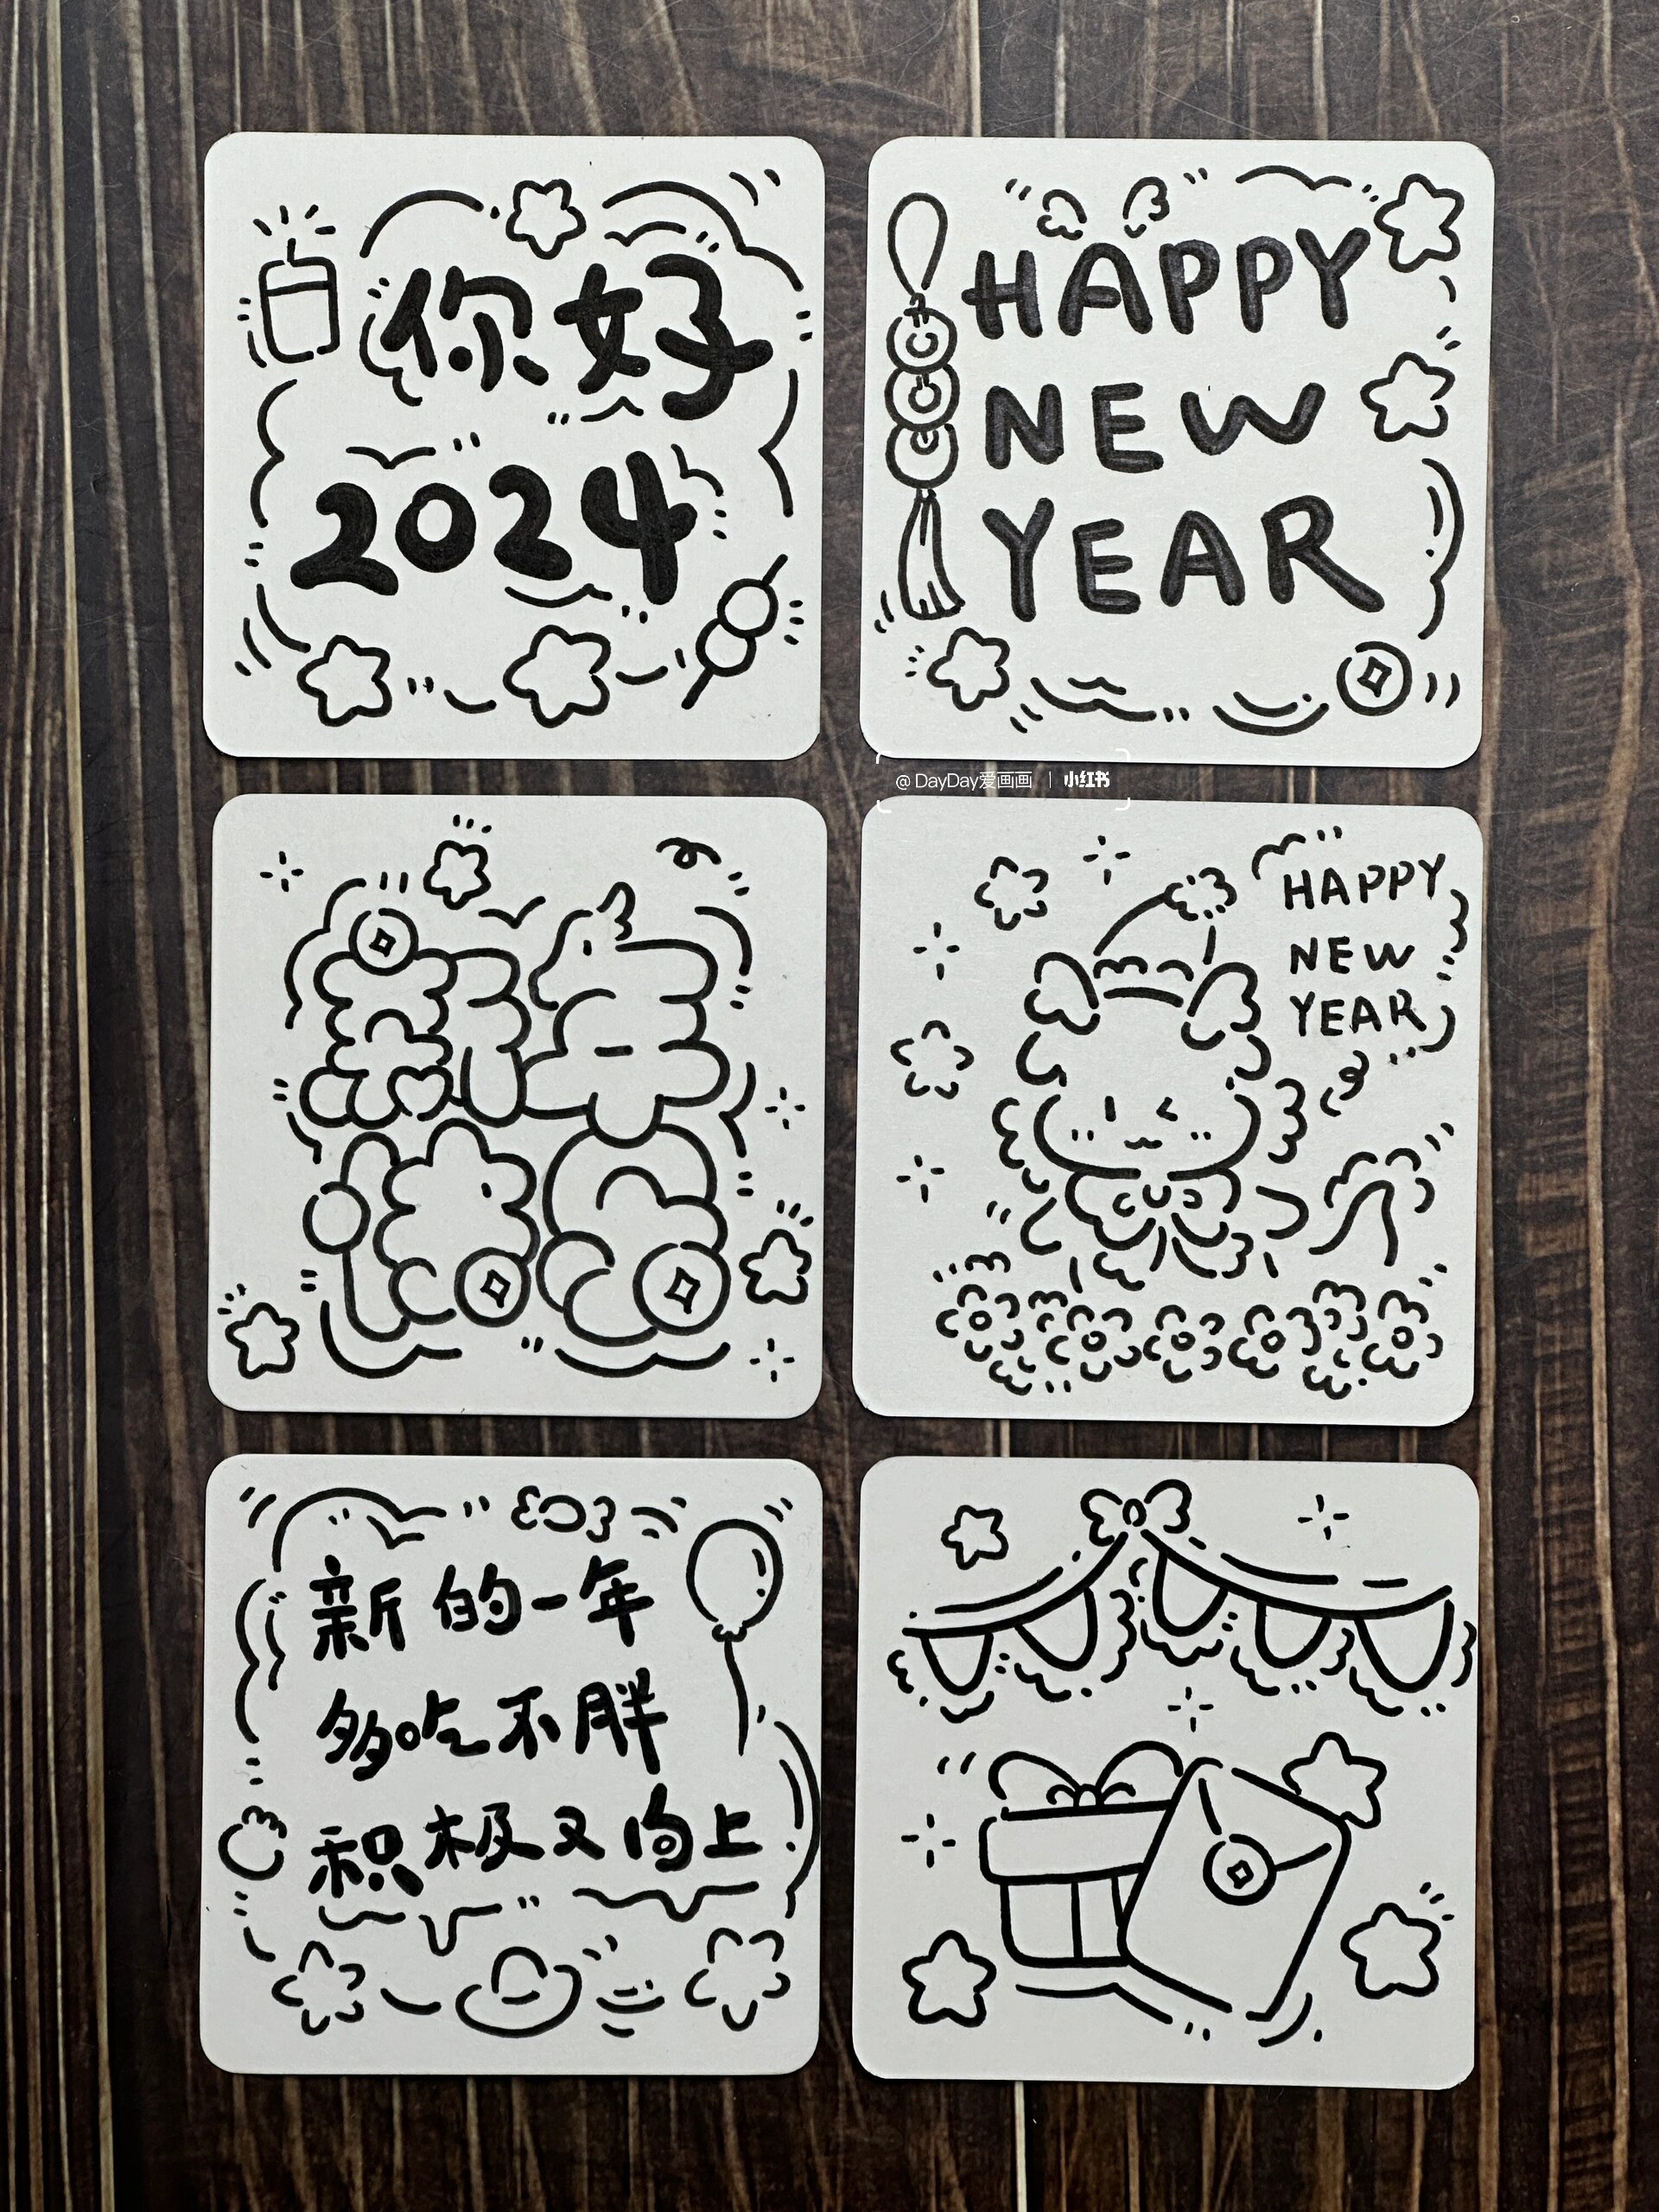 你好
2024
HAPPY
NEW
YEAR
@DayDay爱画画 | 小红书
新年
快乐
HAPPY
NEW
YEAR
新的一年
多吃不胖
积极又向上